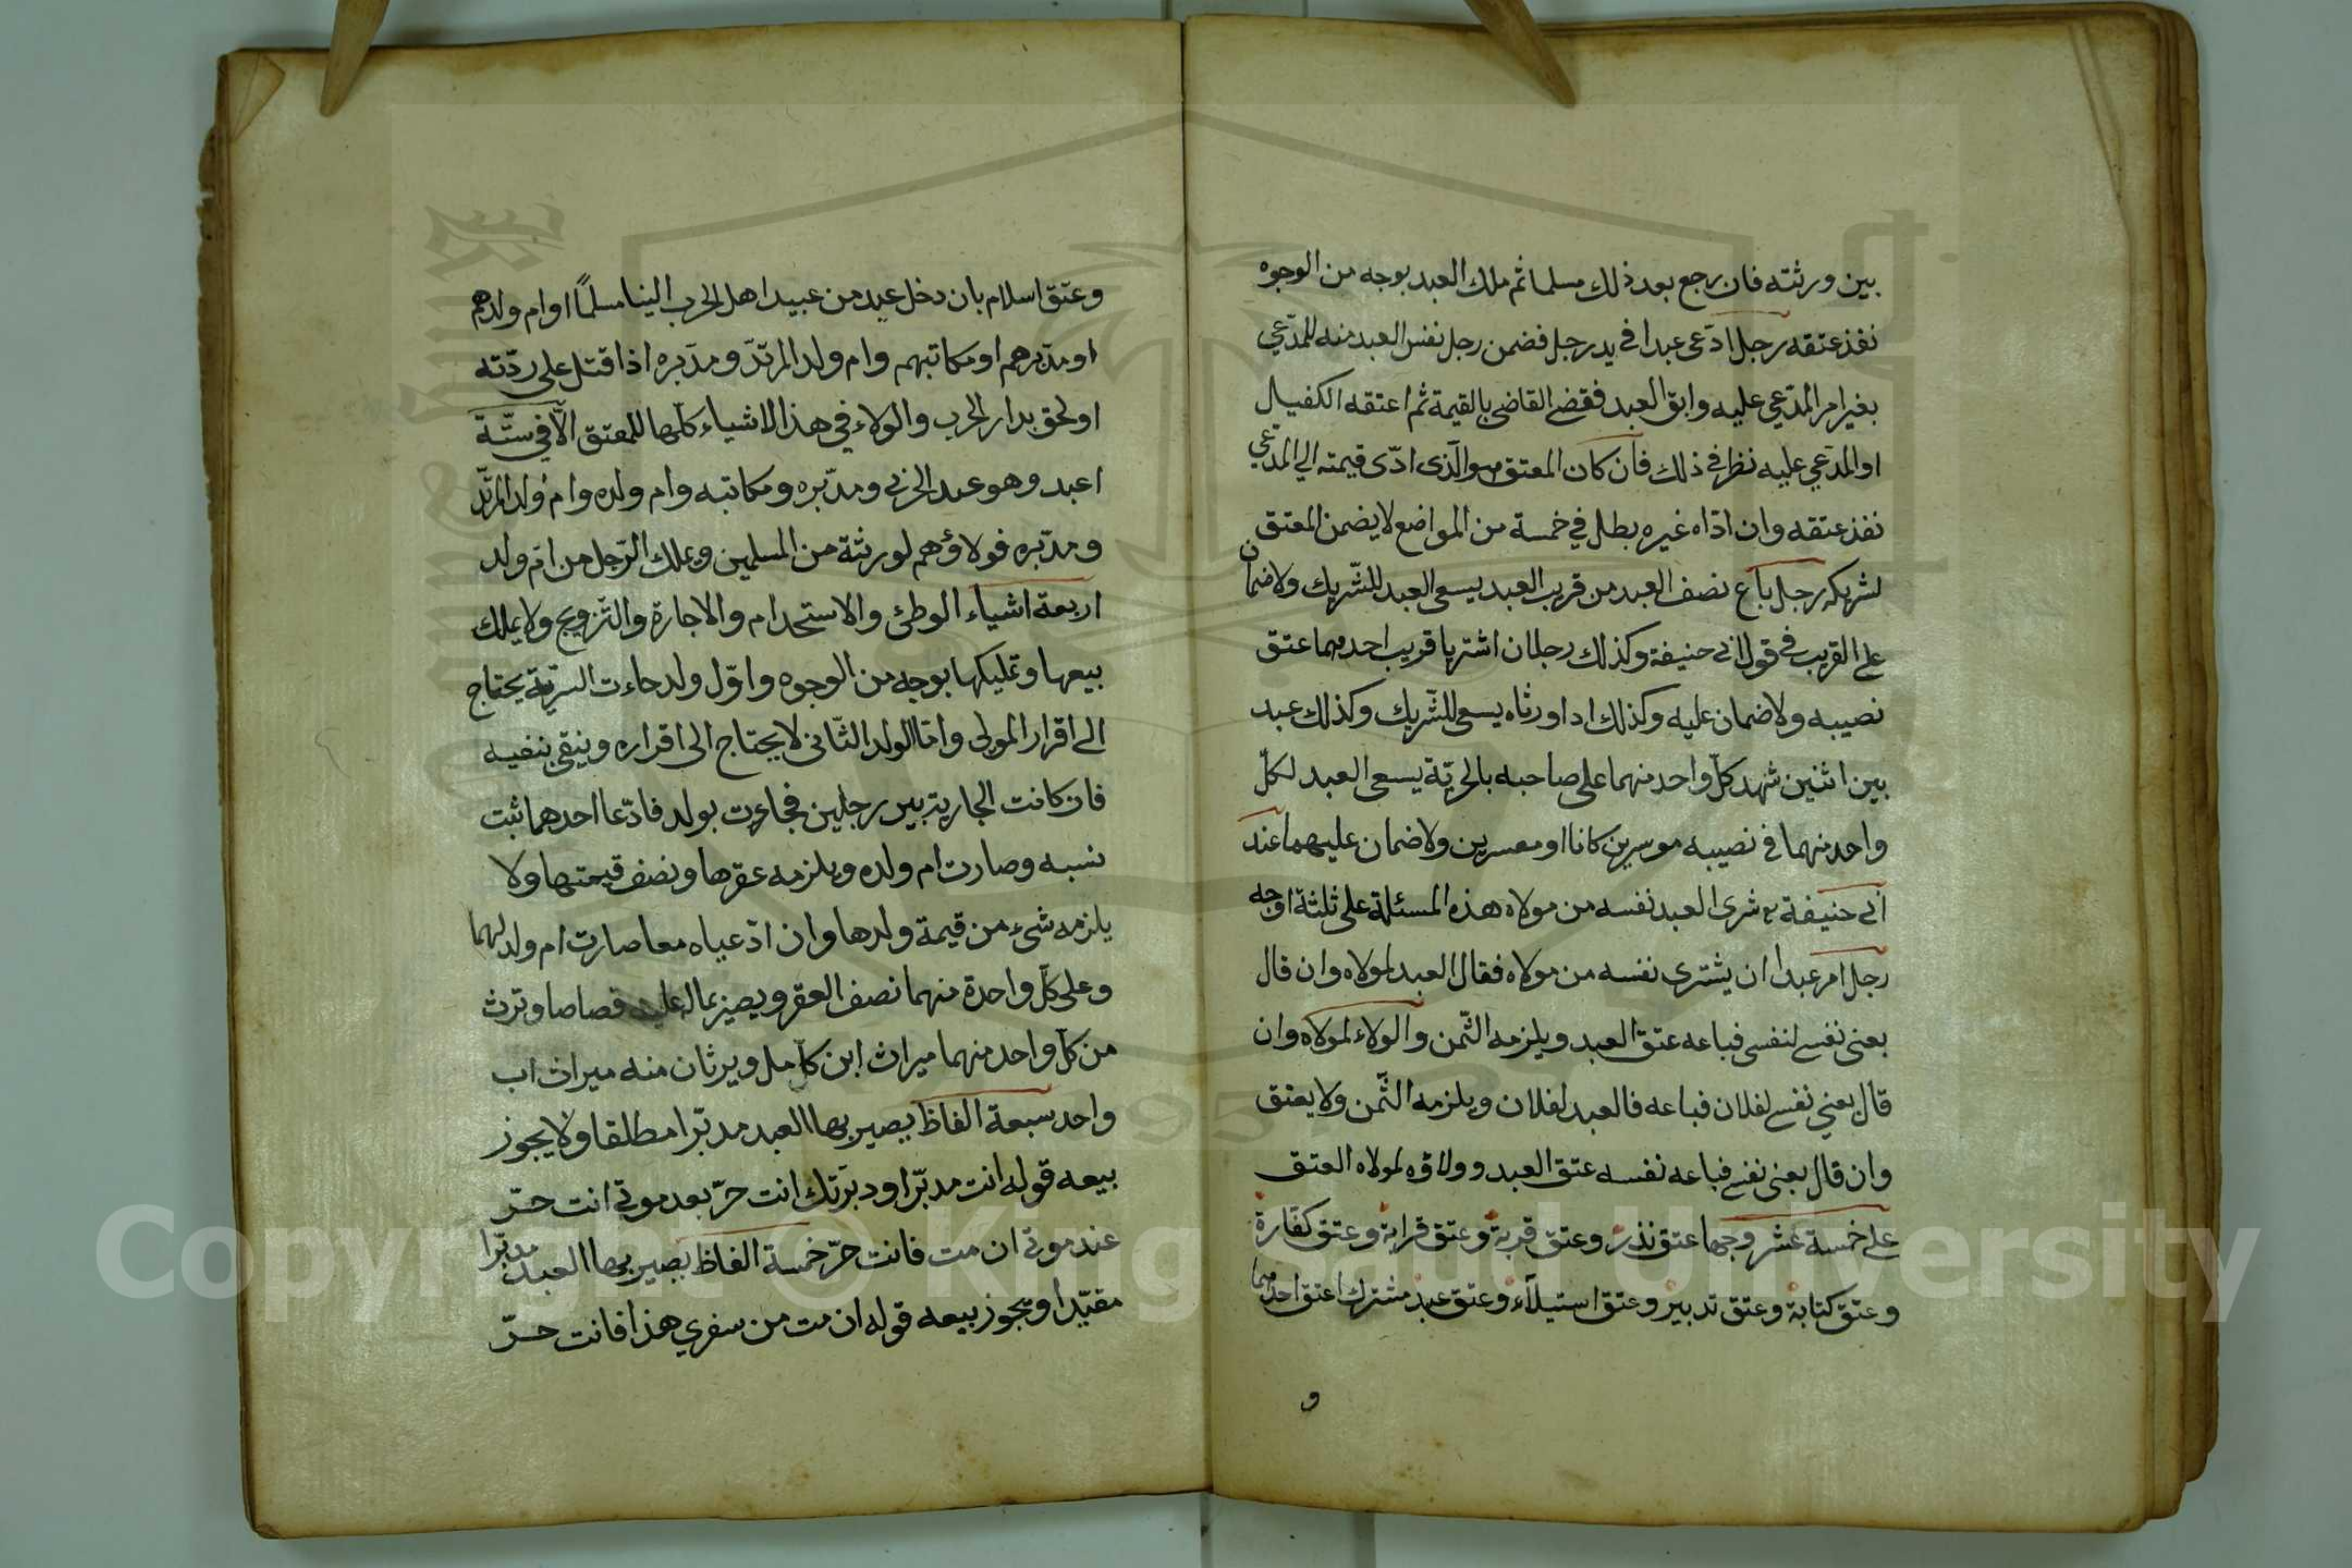 بين ورثته فان رجع بعد ذلك مسلما ثم ملك العبد بوجه من الوجوه
نفذ عتقه رجل ادّعى عبدا في يد رجل فضمن رجل نفس العبد منه للمدّعي
بغير امر المدّعي عليه وابق العبد فقضى القاضي بالقيمة ثم اعتقه الكفيل
او المدّعي عليه نظر في ذلك فان كان المعتق هو الّذى ادّى قيمته الي المدّعي
نفذ عتقه وان ادّاه غيره بطل في خمسة من المواضع لا يضمن المعتق
لشريكه رجل باع نصف العبد من قريب العبد يسعى العبد للشّريك ولا ضمان
على القريب في قول ابي حنيفة وكذلك رجلان اشتريا قريب احدهما عتق
نصيبه ولا ضمان عليه وكذلك اذا ورثاه يسعى للشّريك وكذلك عبد
بين اثنين شهد كلّ واحد منهما على صاحبه بالحريّة يسعى العبد لكلّ
واحد منهما في نصيبه موسرين كانا او معسرين ولا ضمان عليهما عند
ابي حنيفة شرى العبد نفسه من مولاه هذه المسئلة على ثلثة اوجه
رجل امر عبدا ان يشترى نفسه من مولاه فقال العبد لمولاه وان قال
بعنى نفسى لنفسى فباعه عتق العبد ويلزمه الثّمن والولاء لمولاه وان
قال بعني نفسى لفلان فباعه فالعبد لفلان ويلزمه الثّمن ولا يعتق
وان قال بعنى نفسى فباعه نفسه عتق العبد وولاؤه لمولاه العتق
على خمسة عشر وجها عتق نذر وعتق قربة وعتق قرابة وعتق كفّارة
وعتق كتابة وعتق تدبير وعتق استيلآء وعتق عبد مشترك اعتق احدهما
و
وعتق اسلام بان دخل عبد من عبيد اهل الحرب الينا مسلمًا او ام ولدهم
او مدبّرهم او مكاتبهم وام ولد المرتدّ ومدبّره اذا قتل على ردّته
او لحق بدار الحرب والولاء في هذا الاشياء كلّها للمعتق الّا في ستّة
اعبد وهو عبد الحربي ومدبّره ومكاتبه وام ولده وام ولد المرتدّ
ومدبّره فولاؤهم لورثة من المسلمين ويملك الرّجل من امّ ولد
اربعة اشياء الوطئ والاستخدام والاجارة والتّزويج ولا يملك
بيعها وتمليكها بوجه من الوجوه واوّل ولد جاءت السريّة يحتاج
الى اقرار المولى وامّا الولد الثّانى لا يحتاج الى اقراره وينقى بنفيه
فان كانت الجارية بين رجلين فجاءت بولد فادّعا احدهما ثبت
نسبه وصارت ام ولده ويلزمه عقرها ونصف قيمتها ولا
يلزمه شىء من قيمة ولدها وان ادّعياه معا صارت ام ولد لهما
وعلى كلّ واحدة منهما نصف العقر ويصير بماله عليه قصاصا وترث
من كلّ واحد منهما ميراث ابن كامل ويرثان منه ميراث اب
واحد سبعة الفاظ يصير بها العبد مدبّرا مطلقا ولا يجوز
بيعه قوله انت مدبّر او دبّرتك انت حرّ بعد موتي انت حرّ
عند موتي ان مت فانت حرّ خمسة الفاظ يصير بها العبد مدبّرا
مقيّدا ويجوز بيعه قوله ان مت من سفري هذا فانت حرّ
Copyright © King Saud University